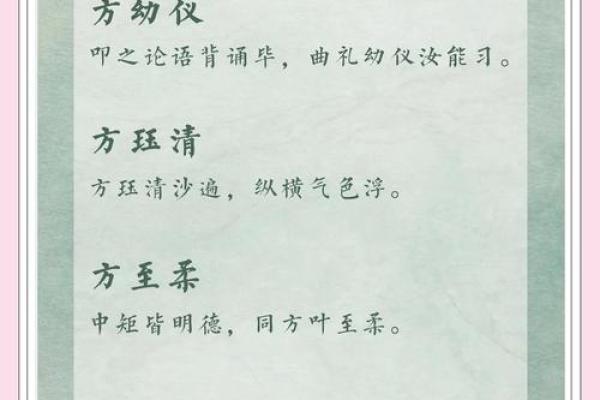 方幼仪
叩之论语背诵毕，曲礼幼仪汝能习。
方珏清
方珏清沙遍，纵横气色浮。
方至柔
中矩皆明德，同方叶至柔。